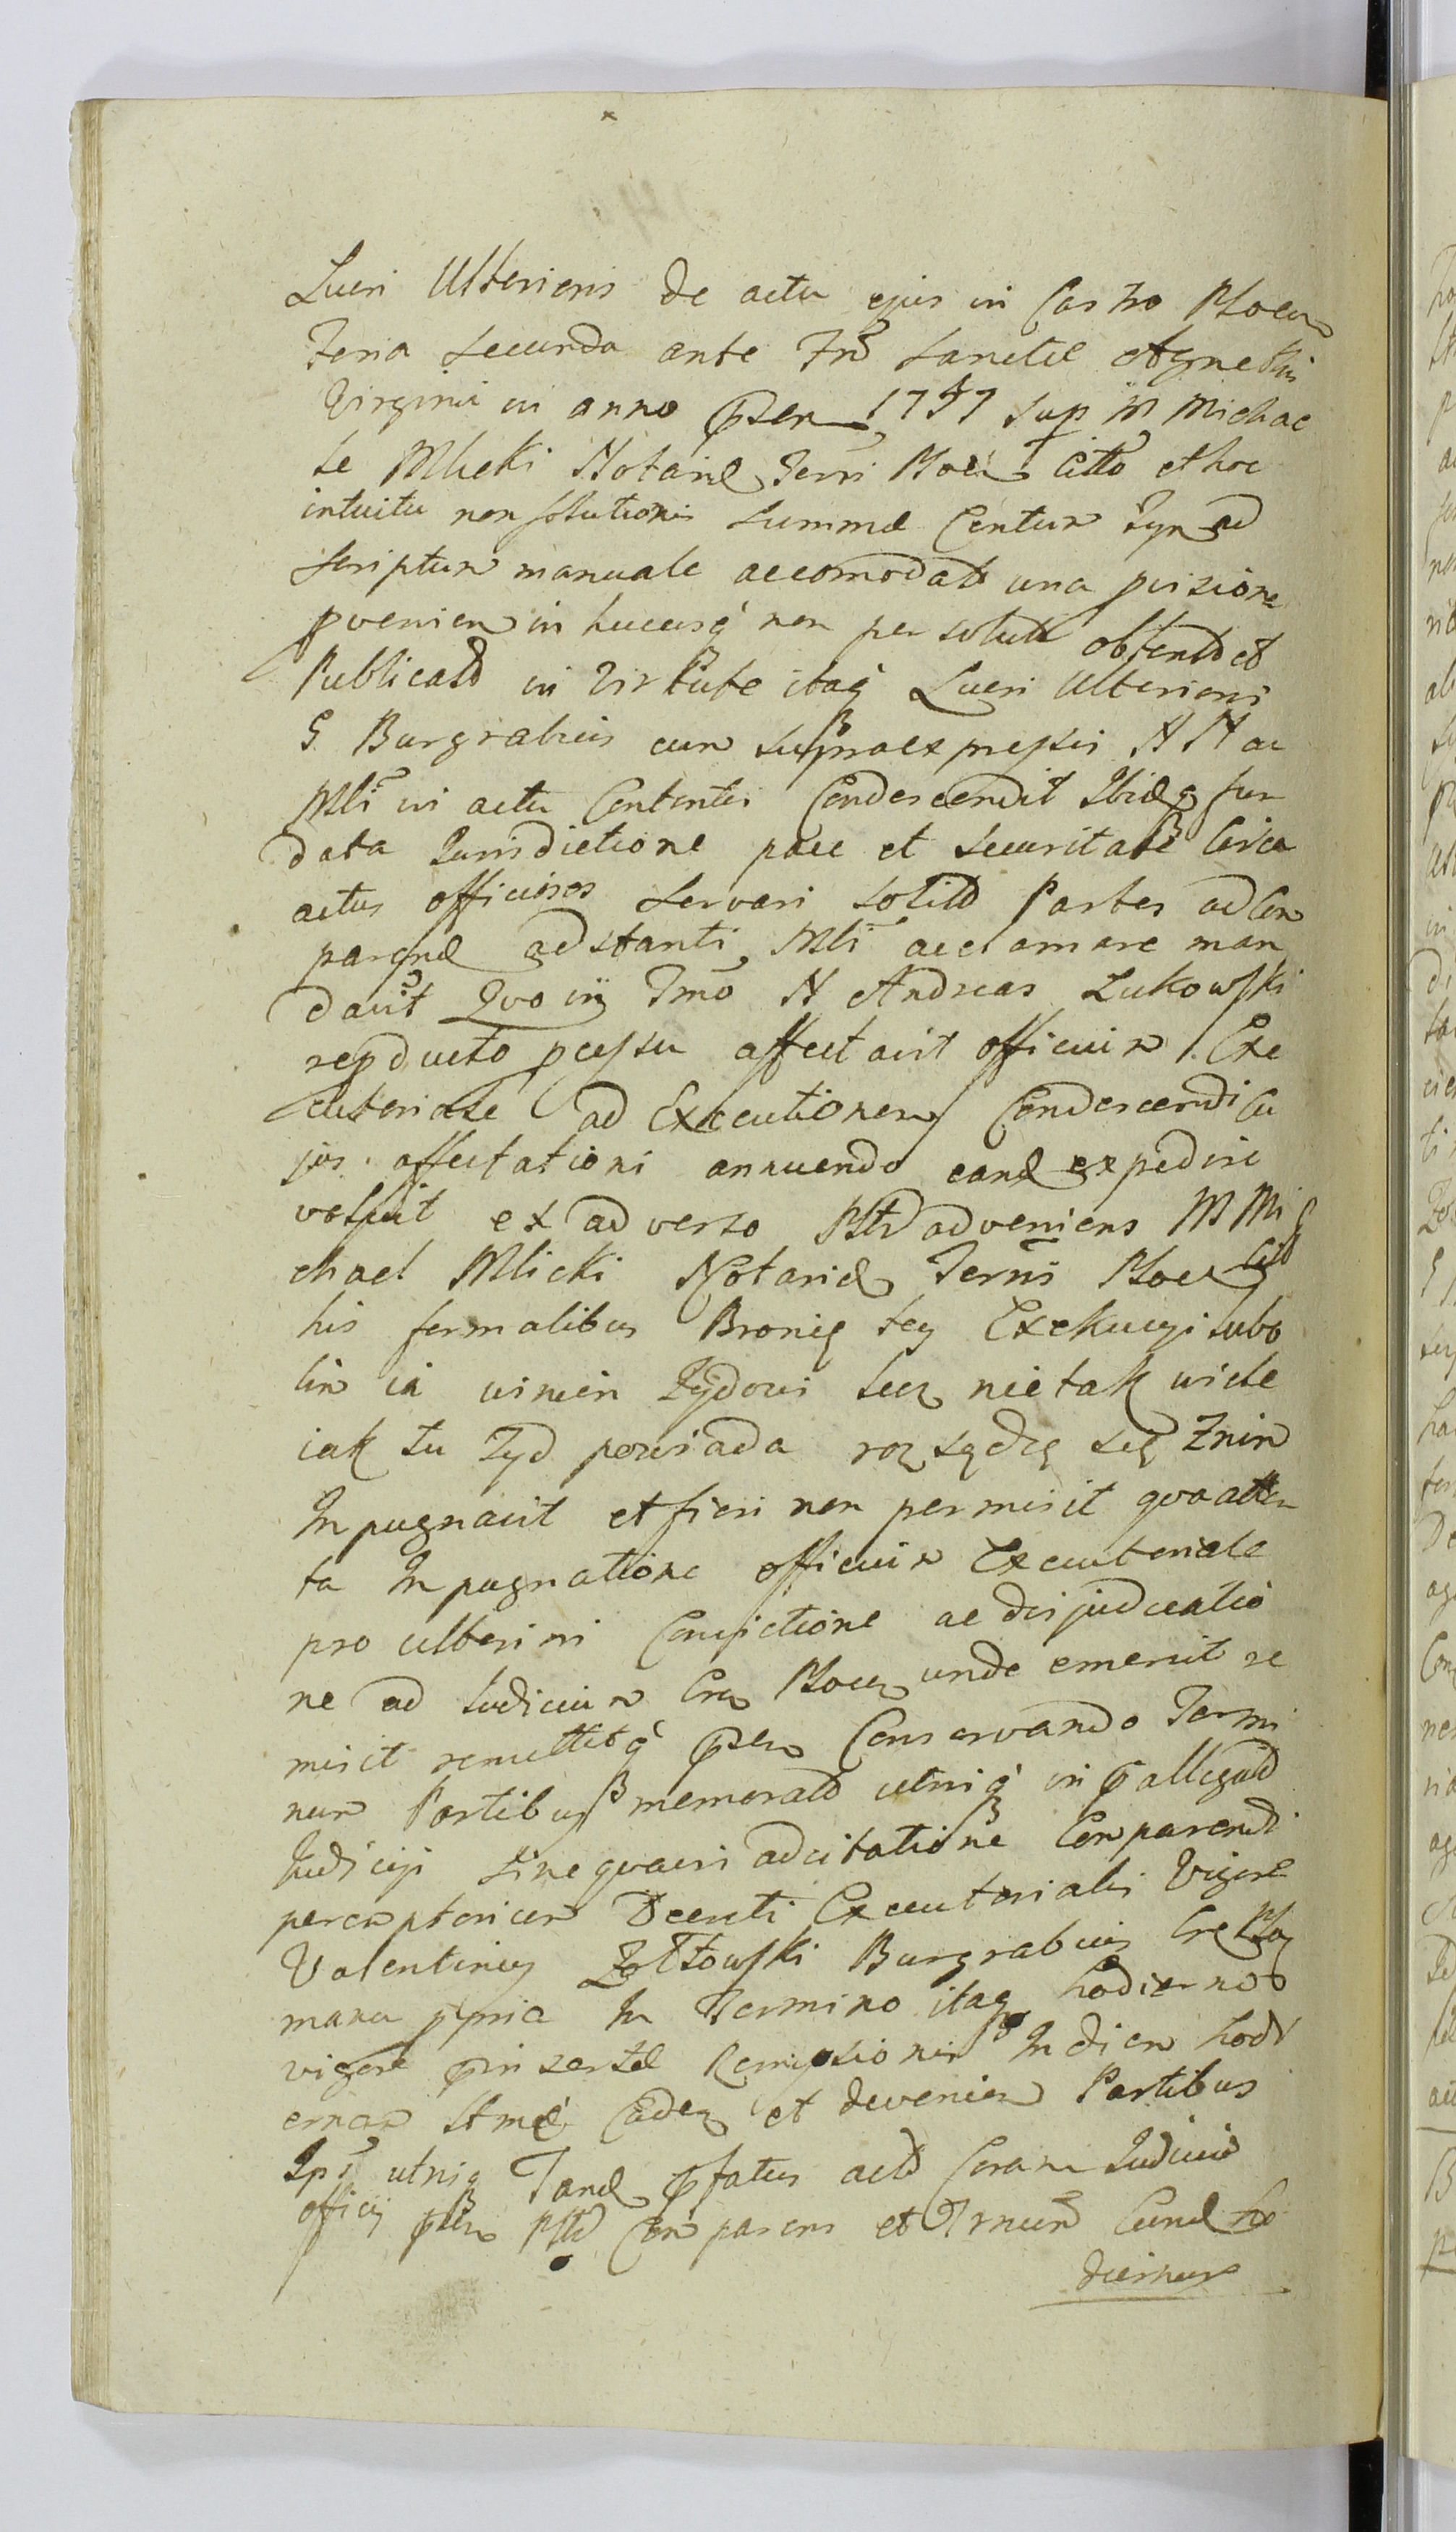 Lucri Ulterioris de actu ejus in Castro Plocen
Feria Secunda ante Fm Sanctæ Agnethis
Virginis in anno pser 1757 Sup M Michae
le Mlicki Notario Terri Plocen Citto et hoc
intuitu non solutionis Summæ Centum Tynf ad
Scriptum manuale accomodat una provisione
provenien in hucusq non persolutæ obtentd et
Publicatd in Virtute itaq Lucri Ulterioris
G Burgrabius cum supraexpressis N N ac
Mli in actu Contentis Condescendit Ibidq fun
data Jurisdictione pace et Securitate Circa
actus officiosos Servari Solitd Partes ad Com
parend adstanti Mli acclamare man
davit Quo in Tmo N Andreas Lukowski
repducto pcessu affectavit officium Exe
cutoriale ad Executionem Condescendi Cu
jus affectationi annuendo eand expedire
voluit ex adverso Pltr adveniens M Mi
chael Mlicki Notarius Terris Plocen Citd
his formalibus Bronię tey Exekucyi lubo
lim ia winien Żydowi lecz nie tak wiele
iak tu Zyd powiada rozsądzę się Znim
Inpugnavit et fieri non permisit qvo atten
ta Inpugnatione officium Executoriale
pro ulteriori Convictione ac disjudicatio
ne ad Judicium Cren Plocen unde emerserit re
misit remittitq psen Conservando Termi
num Partibus memoratd utriq in pallegatd
Judicij Sine quavis adcitatione Comparendi
peremptorium Decreti Executorialis Vigore
Valentinus Zołtowski Burgrabius Cre Plocen
manu ppria In Termino itaq hodierno
vigore pinsertæ Remissionis In diem hodi
ernam Stme Caden et devenien Partibus
Ips utriq Tand pfatus actd Coram Judicio
officij psen Pltd Comparens et Trnum Eund ho
diernum